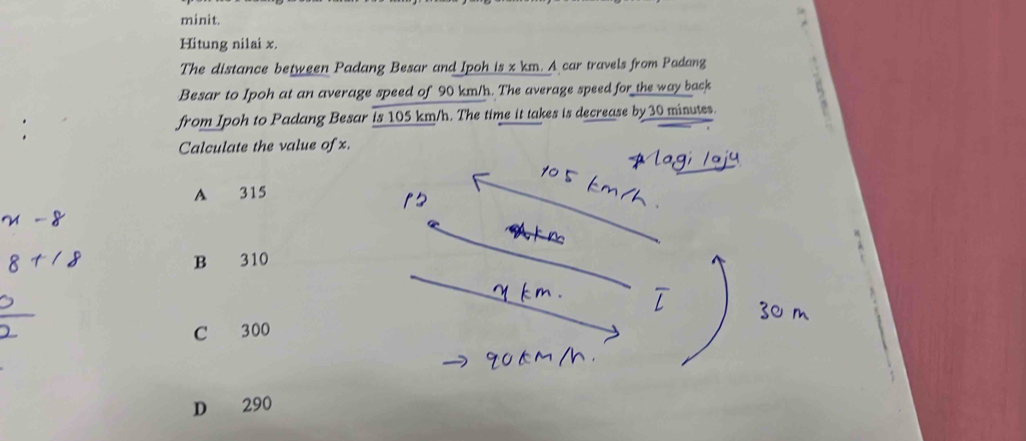 minit.
Hitung nilai x.
The distance between Padang Besar and Ipoh is x km. A car travels from Padang
Besar to Ipoh at an average speed of 90 km/h. The average speed for the way back
from Ipoh to Padang Besar is 105 km/h. The time it takes is decrease by 30 minutes.
Calculate the value of x.
lagi laju
105 km/h.
A 315
x - 8
8 + 18
B 310
x km.
I
30 m
C 300
→ 90 km/h.
D 290